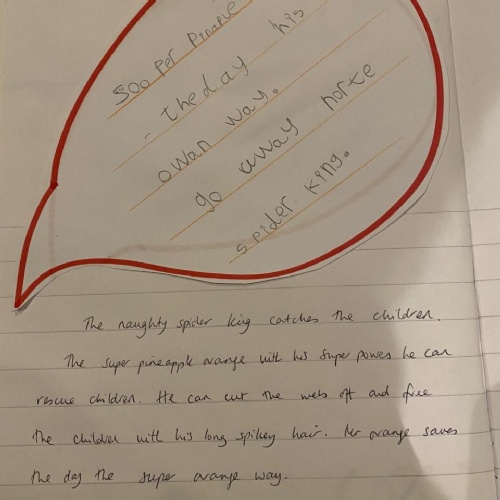 Soo Per Pinaple
the day his
owan way.
go away norte
spider king.
The naughty spider king catches the children.
The super pineapple orange with his super powes he can
rescue children. He can cut the webs off and free
the children with his long spikey hair. Mr orange saves
the day the super orange way.